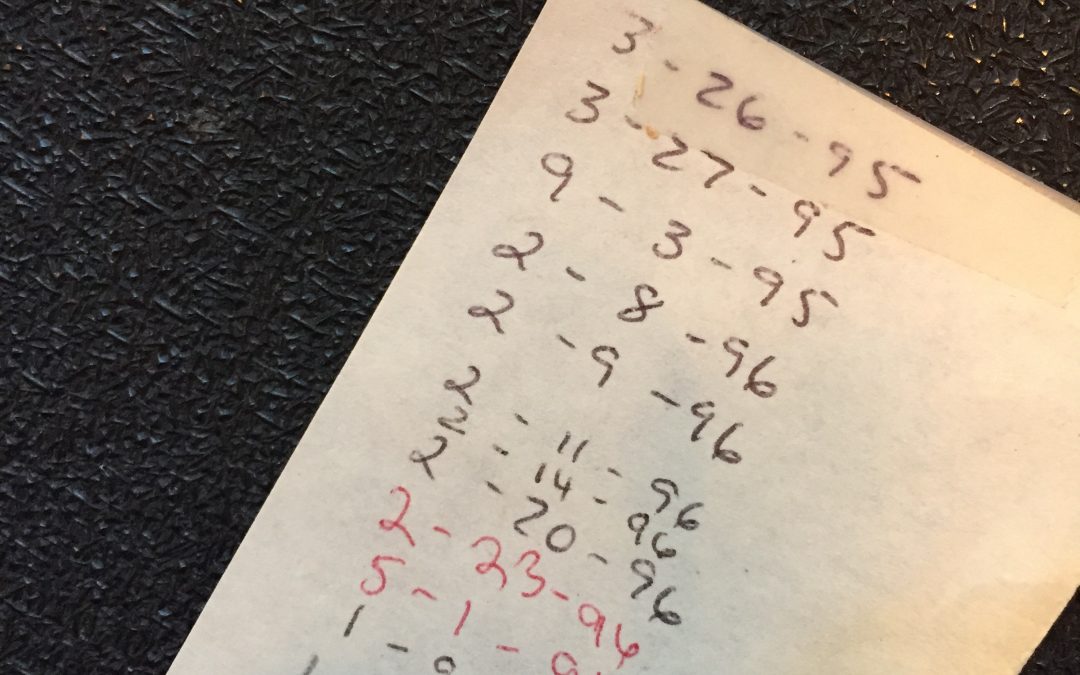 3-26-95
3-27-95
9-3-95
2-8-96
2-9-96
2-11-96
2-14-96
2-20-96
2-23-96
5-1-9
1-